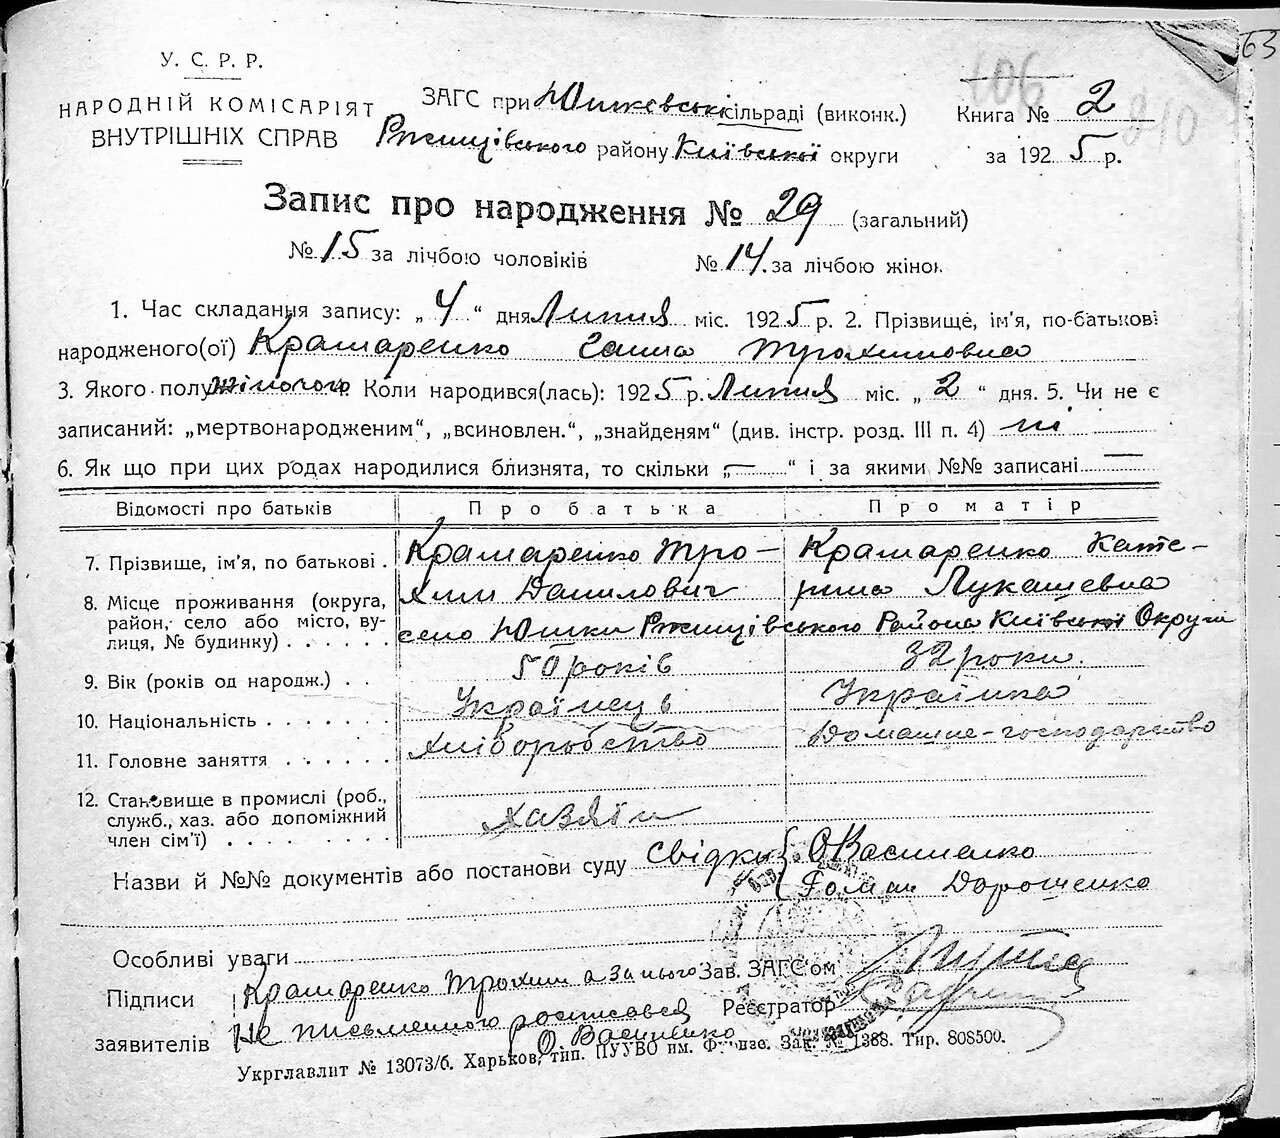 63
106
210
У. С. Р. Р.
НАРОДНІЙ КОМІСАРІЯТ
ВНУТРІШНІХ СПРАВ
ЗАГС при Юшкевські сільраді (виконк.)
Ржищівського району Київської округи
Книга № 2
за 1925 р.
Запис про народження № 29 (загальний)
№ 15 за лічбою чоловіків № 14. за лічбою жінок
1. Час складання запису: „4“ дня Липня міс. 1925 р. 2. Прізвище, ім'я, по-батькові
народженого(ої) Крамаренко Ганна Трохимовна
3. Якого полу жіночого. Коли народився(лась): 1925 р. Липня міс. „2“ дня. 5. Чи не є
записаний: „мертвонародженим“, „всиновлен.“, „знайденям“ (див. інстр. розд. III п. 4) ні
6. Як що при цих родах народилися близнята, то скільки „—“ і за якими №№ записані —
Відомості про батьків Про батька Про матір
7. Прізвище, ім'я, по батькові . Крамаренко Тро- Крамаренко Кате-
хим Данилович рина Лукашевна
8. Місце проживання (округа,
район, село або місто, ву-
лиця, № будинку) . . . . . . село Юшки Ржищівського Района Київської Округи
9. Вік (років од народж.) . . 50 років 32 роки.
10. Національність . . . . . . . Українець Українка
11. Головне заняття . . . . . . Хліборобство Домашне-господарство
12. Становище в промислі (роб.,
служб., хаз. або допоміжний
член сім'ї) . . . . . . . . . хазяїн
Назви й №№ документів або постанови суду Свідки { О Василенко
Роман Дорошенко
Особливі уваги
Підписи Крамаренко Трохим а за нього Зав. ЗАГС'ом
заявителів Не письменного росписався Реєстратор
О. Василенко
Укрглавлит № 13073/б. Харьков, тип. ПУУВО им. Фрунзе. Зак. № 1388. Тир. 808500.